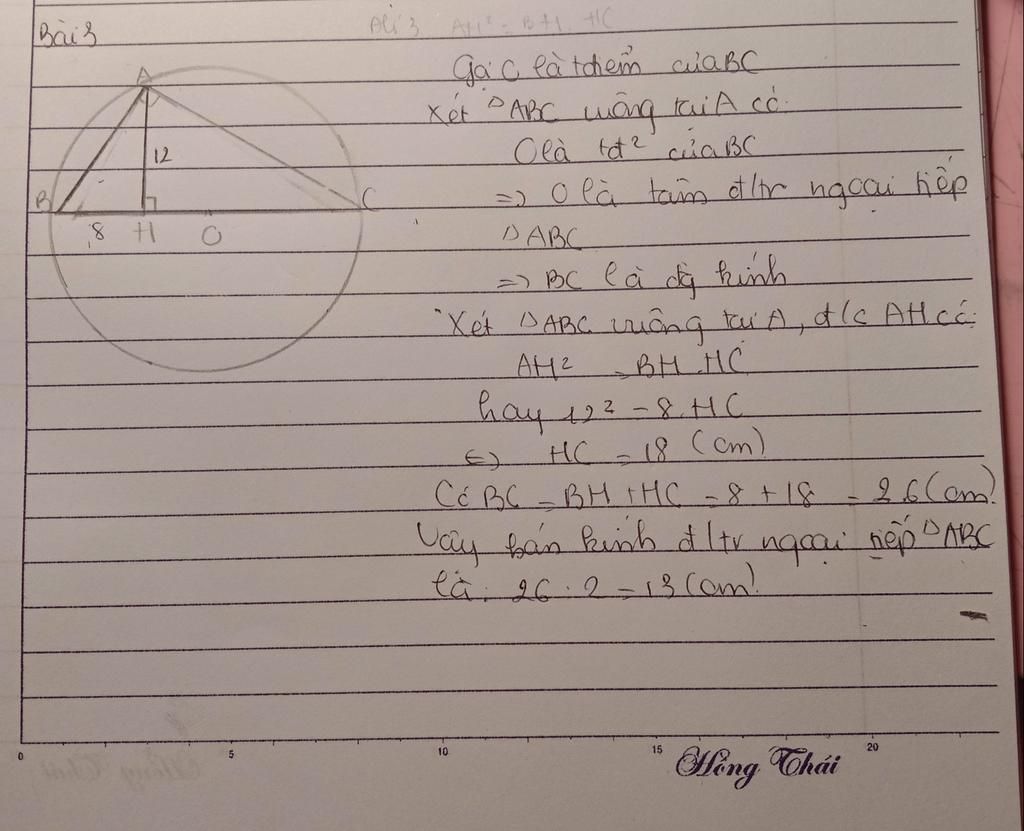 Bài 3
AH² = BH. HC
A
12
B
C
8 H O
Gọi O là tđiểm củaBC
Xét △ABC vuông tại A có:
O là tđ² củaBC
=> O là tâm đ/tr ngoại tiếp
△ABC
=> BC là đg kính
Xét △ABC vuông tại A, đ/c AH có:
AH² = BH.HC
hay 12² = 8.HC
<=> HC = 18 (cm)
Có BC = BH+HC = 8 + 18 = 26(cm)
Vậy bán kính đ/tr ngoại tiếp △ABC
là: 26 : 2 = 13 (cm)
0 5 10 15 20
Hồng Thái